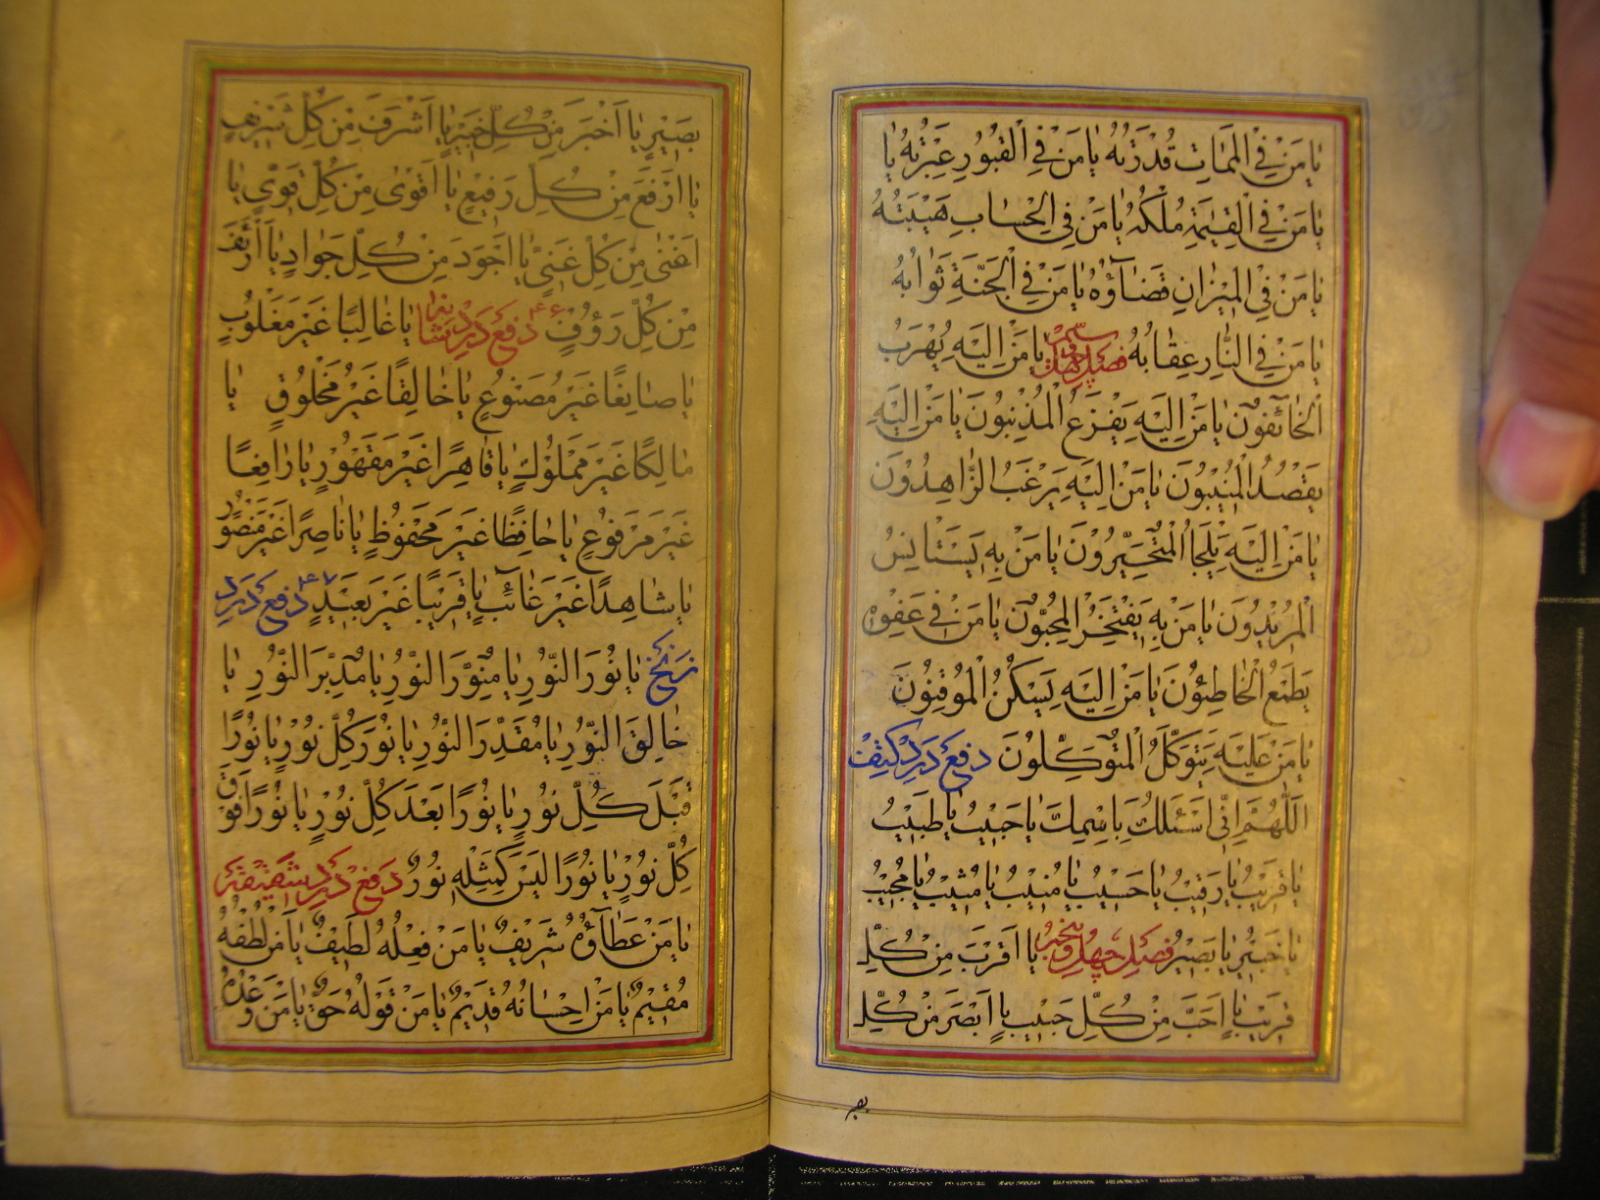 يا مَنْ فِي الْمَمَاتِ قُدْرَتُهُ يا مَنْ فِي الْقُبُورِ عِبْرَتُهُ يا
يا مَنْ فِي الْقِيٰمَةِ مُلْكُهُ يا مَنْ فِي الْحِسَابِ هَيْبَتُهُ
يا مَنْ فِي الْمِيْزانِ قَضَآؤُهُ يا مَنْ فِي الْجَنَّةِ ثَوابُهُ
يا مَنْ فِي النَّارِ عِقَابُهُ يا مَنْ اِلَيْهِ يَهْرَبُ
الْخائِفُونَ يا مَنْ اِلَيْهِ يَفْزَعُ الْمُذْنِبُونَ يا مَنْ اِلَيْهِ
يَقْصُدُ الْمُنِيْبُونَ يا مَنْ اِلَيْهِ يَرْغَبُ الزَّاهِدُوْنَ
يا مَنْ اِلَيْهِ يَلْجَأُ الْمُتَحَيِّرُوْنَ يا مَنْ بِهِ يَسْتَأنِسُ
الْمُرِيْدُوْنَ يا مَنْ بِهِ يَفْتَخِرُ الْمُحِبُّوْنَ يا مَنْ فِي عَفْوِهِ
يَطْمَعُ الْخاطِئُوْنَ يا مَنْ اِلَيْهِ يَسْكُنُ الْمُوقِنُوْنَ
يا مَنْ عَلَيْهِ يَتَوَكَّلُ الْمُتَوَكِّلُونَ دفع درد كتف
اَللّٰهُمَّ اِنّى اَسْئَلُكَ بِاسْمِكَ يا حَبِيْبُ يا طَبِيْبُ
يا قَرِيْبُ يا رَقِيْبُ يا حَسِيْبُ يا مُنِيْبُ يا مُثِيْبُ يا مُجِيْبُ
يا خَبِيْرُ يا بَصِيْرُ فصل چهل و پنجم يا اَقْرَبَ مِنْ كُلِّ
قَرِيْبٍ يا اَحَبَّ مِنْ كُلِّ حَبِيْبٍ يا اَبْصَرَ مِنْ كُلِّ
بصير
بَصِيْرٍ يا اَخْبَرَ مِنْ كُلِّ خَبِيْرٍ يا اَشْرَفَ مِنْ كُلِّ شَرِيْفٍ
يا اَرْفَعَ مِنْ كُلِّ رَفِيْعٍ يا اَقْوىٰ مِنْ كُلِّ قَوِيٍّ يا
اَغْنىٰ مِنْ كُلِّ غَنِيٍّ يا اَجْوَدَ مِنْ كُلِّ جَوادٍ يا اَرْأَفَ
مِنْ كُلِّ رَؤُفٍ ٤٦ دفع درد يا غالِبًا غَيْرَ مَغْلُوْبٍ
يا صانِعًا غَيْرَ مَصْنُوْعٍ يا خالِقًا غَيْرَ مَخْلُوْقٍ يا
مالِكًا غَيْرَ مَمْلُوْكٍ يا قاهِرًا غَيْرَ مَقْهُوْرٍ يا رافِعًا
غَيْرَ مَرْفُوْعٍ يا حافِظًا غَيْرَ مَحْفُوْظٍ يا ناصِرًا غَيْرَ مَنْصُوْرٍ
يا شاهِدًا غَيْرَ غائِبٍ يا قَرِيْبًا غَيْرَ بَعِيْدٍ ٤٧ دفع درد
يا نُوْرَ النُّوْرِ يا مُنَوِّرَ النُّوْرِ يا مُدَبِّرَ النُّوْرِ يا
خالِقَ النُّوْرِ يا مُقَدِّرَ النُّوْرِ يا نُوْرَ كُلِّ نُوْرٍ يا نُوْرًا
قَبْلَ كُلِّ نُوْرٍ يا نُوْرًا بَعْدَ كُلِّ نُوْرٍ يا نُوْرًا فَوْقَ
كُلِّ نُوْرٍ يا نُوْرًا لَيْسَ كَمِثْلِهِ نُوْرٌ دفع درد شقيقه
يا مَنْ عَطاؤُهُ شَرِيْفٌ يا مَنْ فِعْلُهُ لَطِيْفٌ يا مَنْ لُطْفُهُ
مُقِيْمٌ يا مَنْ اِحْسانُهُ قَدِيْمٌ يا مَنْ قَوْلُهُ حَقٌّ يا مَنْ وَعْدُهُ